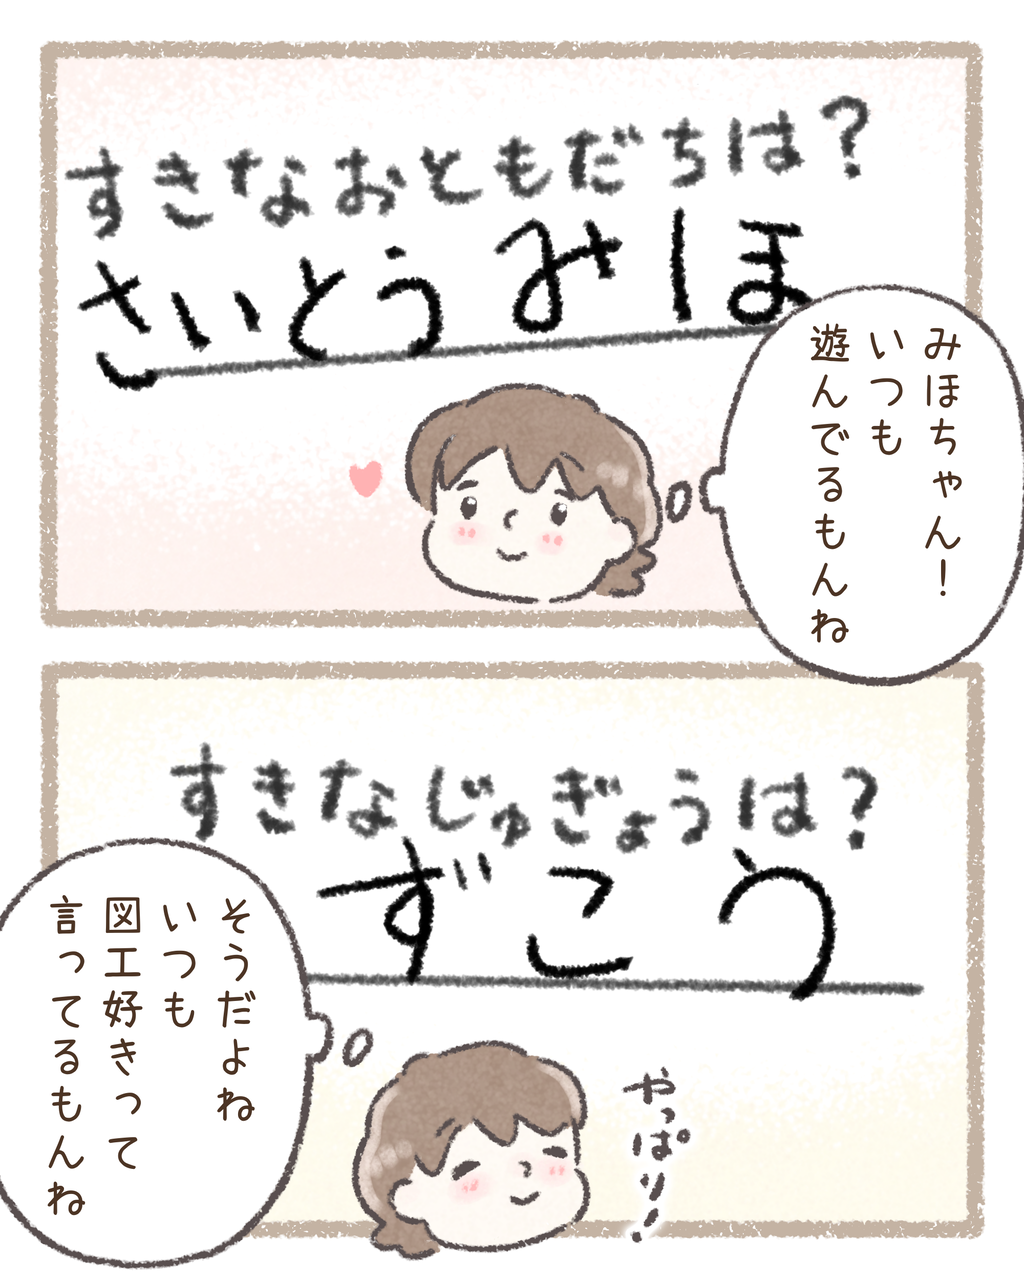 すきなおともだちは？
さいとうみほ
みほちゃん！
いつも
遊んでるもんね
すきなじゅぎょうは？
ずこう
そうだよね
いつも
図工好きって
言ってるもんね
やっぱり！